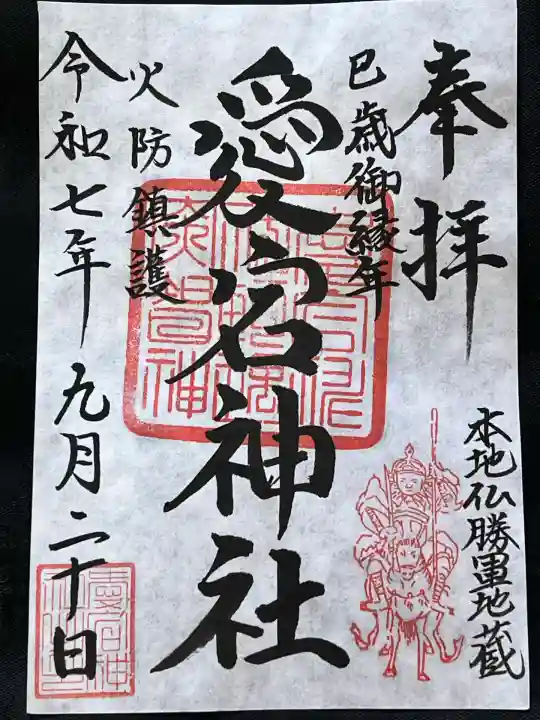 奉拝
巳歳御縁年
本地仏勝軍地蔵
愛宕神社
火防鎮護
令和七年九月二十日